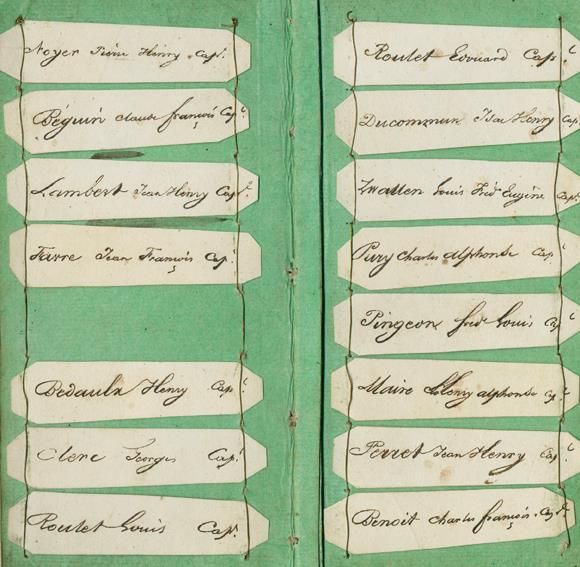 Noyer Pierre Henry Cap.ᵗ
Béguin claude françois Cap.ᵗ
Lambert Jean Henry Cap.ᵗ
Favre Jean François Cap.ᵗ
Bedaulx Henry Cap.ᵗ
Clerc Georges Cap.ᵗ
Roulet Louis Cap.ᵗ
Roulet Edouard Cap.ᵗ
Ducommun Isac Henry Cap.ᵗ
Zwallen Louis Fréd Eugène Cap.ᵗ
Pury Charles alphonse Cap.ᵗ
Pingeon fréd Louis Cap.ᵗ
Maire Henry alphonse Cap.ᵗ
Perret Jean Henry Cap.ᵗ
Benoit Charles françois Cap.ᵗ